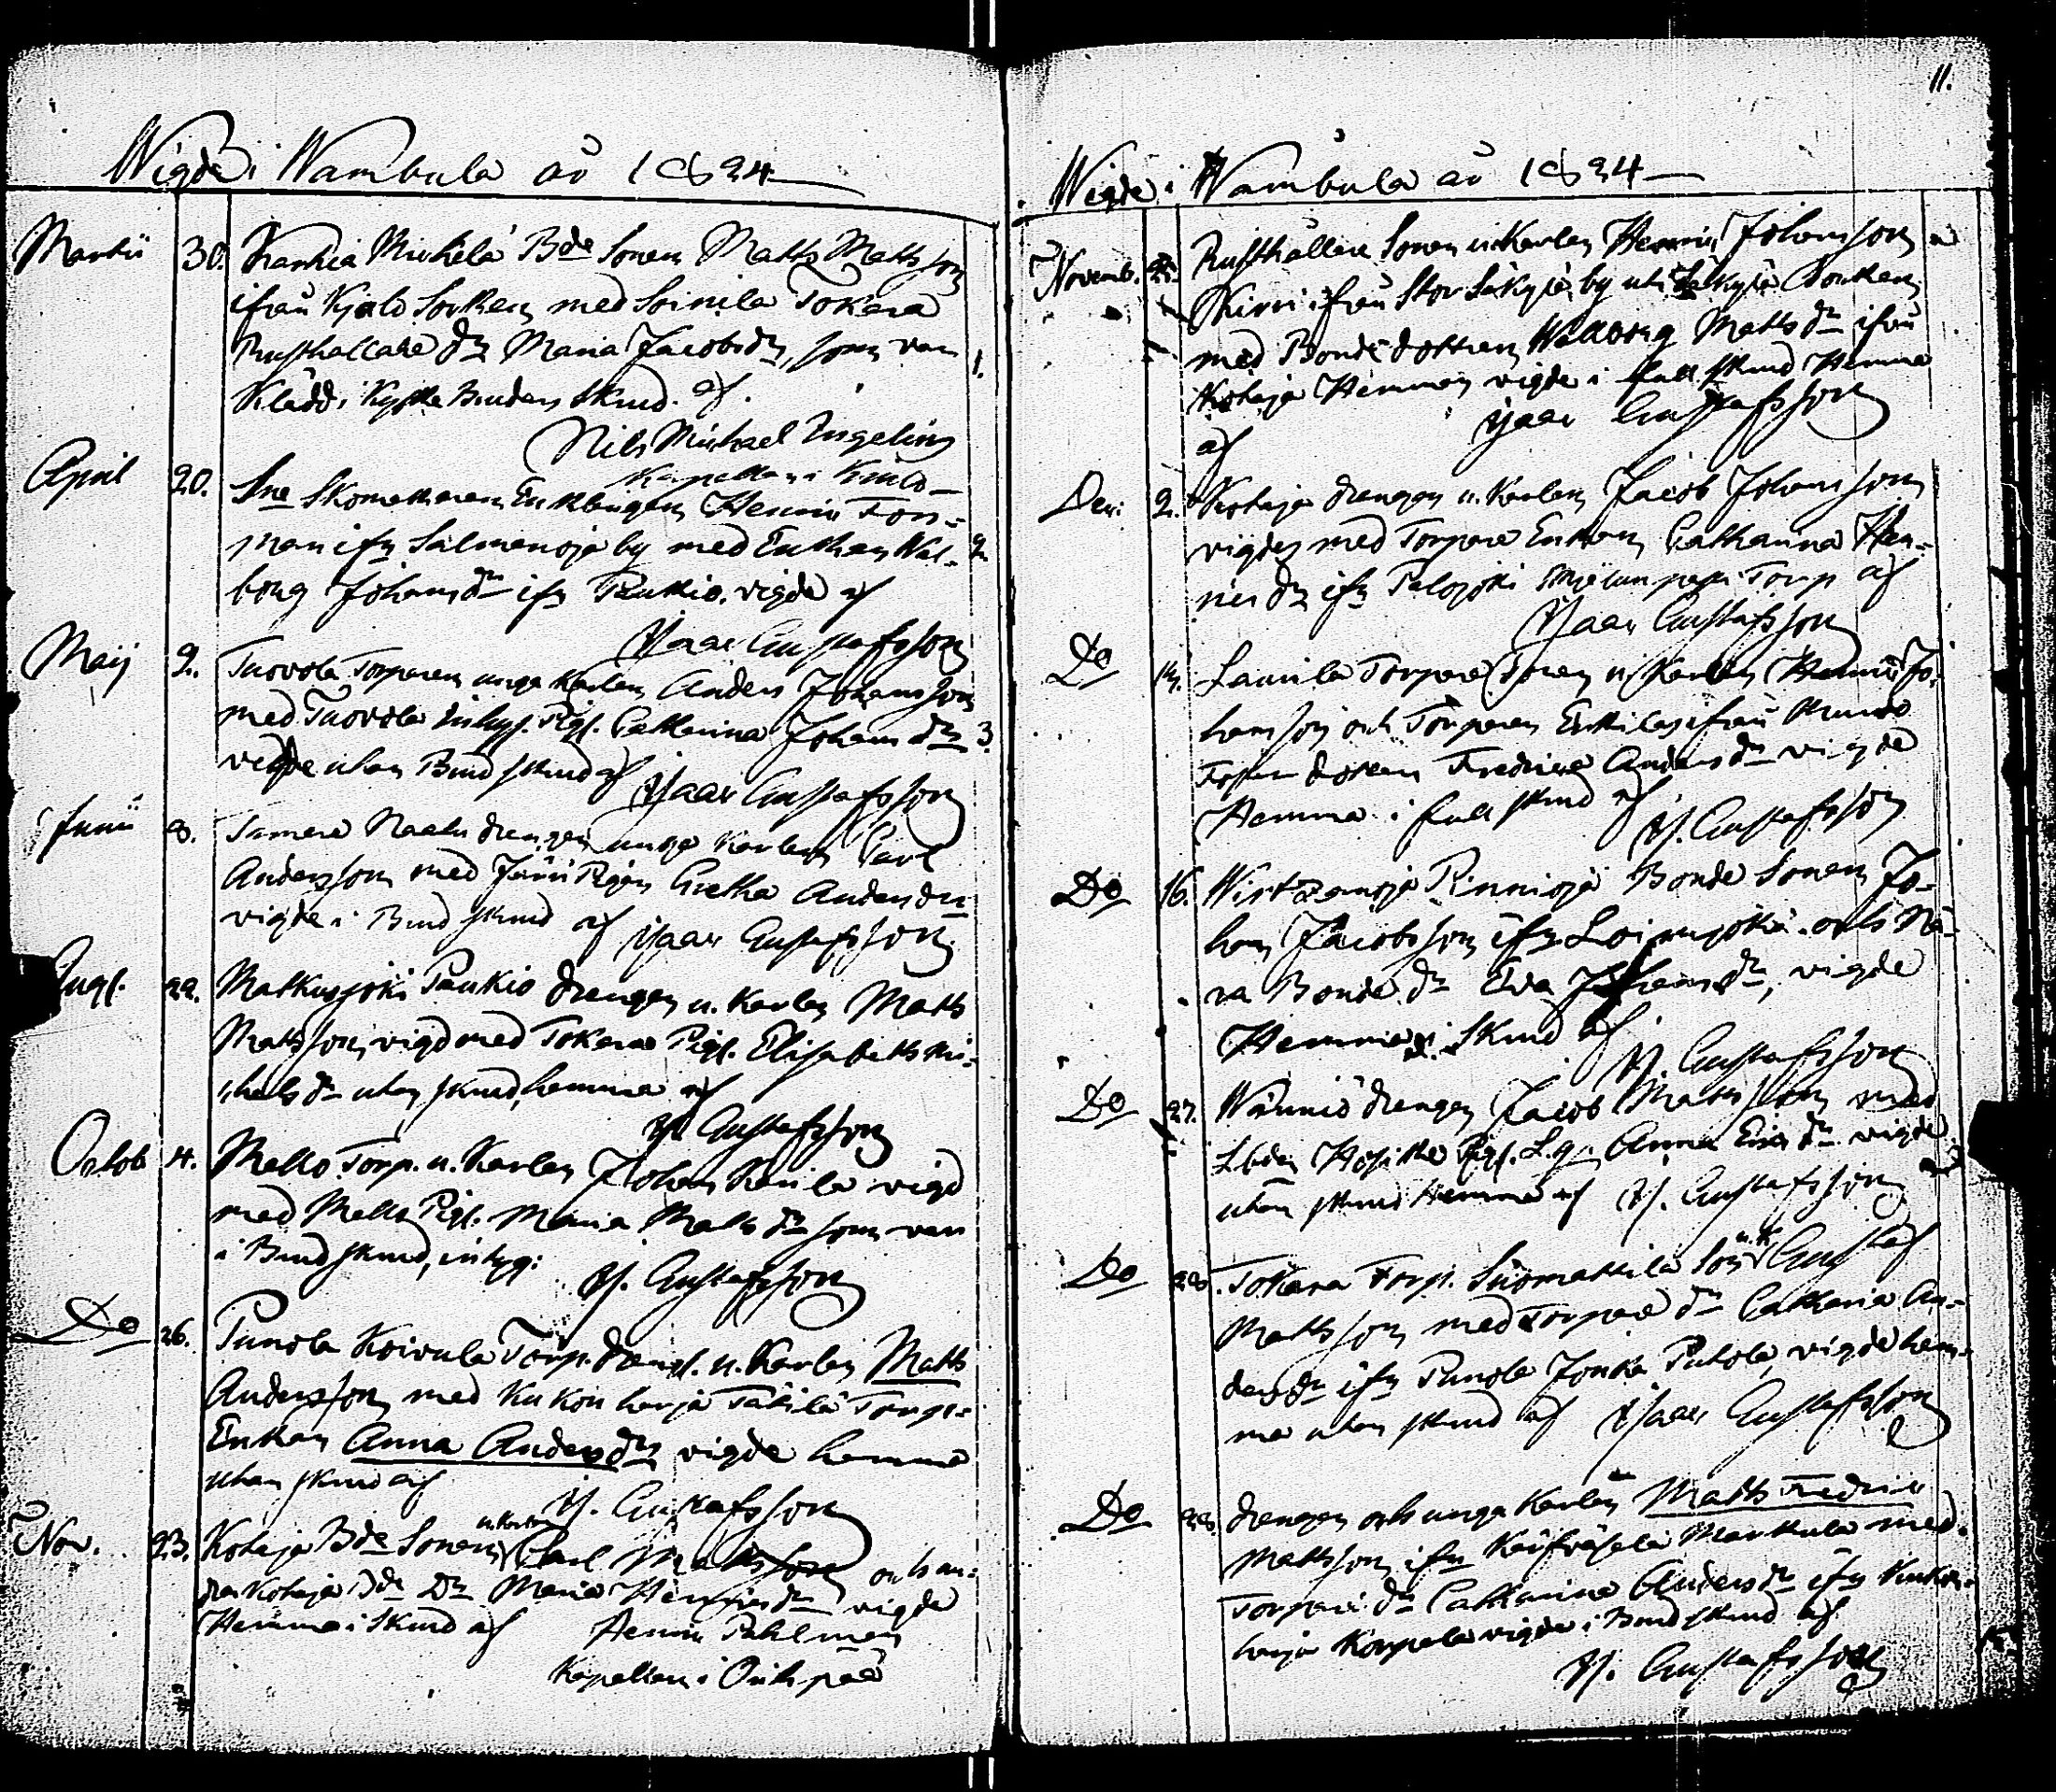 Wigde i Wambula år 1824
Martii 30. Karhia Mickelä Bde Sonen Matts Matts son
ifrån Kjulo Sockn med Soinila Tokara
Rusthållare dr Maria Jacobsdr, som var 1.
Klädd i Kyrka Brudars Skrud. af.
Nils Michael Ingelius
Kapellan i Kiulo
April 20. Skomakaren Enklingen Henric Fors-
man ifr Salmenoja by med Enkan Wal- 2
borg Johansdr ifr Rutkio. vigde af
Isaac Gustafsson
Maij 2. Tuovola Torparen unga Karlen Anders Johansson
med Tuovola inhys. Pig. Catharina Johans dr 3.
vigde utan Brud skrud af Isaac Gustafsson
Junii 8. drengen unga Karlen Carl
Andersson med Pigan Gretha Anders dr
vigde i Brud skrud af Isaac Gustafsson
Augs. 22. Matkusjoki Paukio drengen u. Karlen Matts
Mattsson, vigd med Tokara Pig. Elisabeth Mi-
chels dr utan skrud, hemma af
Is. Gustafsson
Octob 4. Mello Torp. u. Karlen Johan vigd
med Mello Pig. Maria Matts dr som var
i Brud skrud, inhyg:
Is. Gustafsson
Do 26. Punola Koivula Torp. dreng. u. Karlen Matts
Andersson med Kukonharja Täkilä Torp.
Enkan Anna Anders dr vigde hemma
utan skrud af
Is. Gustafsson
Nov. 23. Kohaja Bde Sonen u. Karlen Carl Mattsson och an-
dra Kohaja Bde Dr Maria Henricsdr vigde
Hemma i Skrud af Henric Pahlman
Kapellan i Oripää
11.
Wigde i Wambula år 1824
Novemb. Rusthållare Sonen u. Karlen Henric Johansson
ifrån Stor Säkylä by uti Säkylä Socken
med Bonde dottren Walborg Matts dr ifrån
Kohaja Hemman vigde i full skrud Hemma
af Isaac Gustafsson
Dec: 2. Kohaja drengen u. Karlen Jacob Johansson
vigder med Torpare Enkan Catharina Hen-
rics dr ifr Palojoki Torp af
Isaac Gustafsson
Do 14. Laurila Torpare Sonen u. Karlen Henric Jo-
hansson och Torparen ifrån
dottren Fredrica Anders dr vigde
Hemma i full skrud af
Is. Gustafsson
Do 16. Wirtzanoja Rinnioja Bonde Sonen Jo-
han Jacobsson ifr Loimijoki och Na-
ra Bonde dr Eva Johans dr, vigde
Hemma i Skrud af
Is. Gustafsson
Do 27. Wännio drengen Jacob Matts son med
Pig. Anna Erics dr vigde
utan skrud Hemma af Is. Gustafsson
Do 28. Tokara Torp. Suomattila Son u. K. Gustaf
Mattsson med Torpare dr Catharina An-
ders dr ifr Punola Jonka Pukola, vigde hem-
ma utan skrud af Isaac Gustafsson
Do 28. drengen och unga Karlen Matts Fredric
Mattsson ifr Markula med
Torpare dr Catharina Anders dr ifr Kukon-
harja Korpela vigde i Brud skrud af
Is. Gustafsson